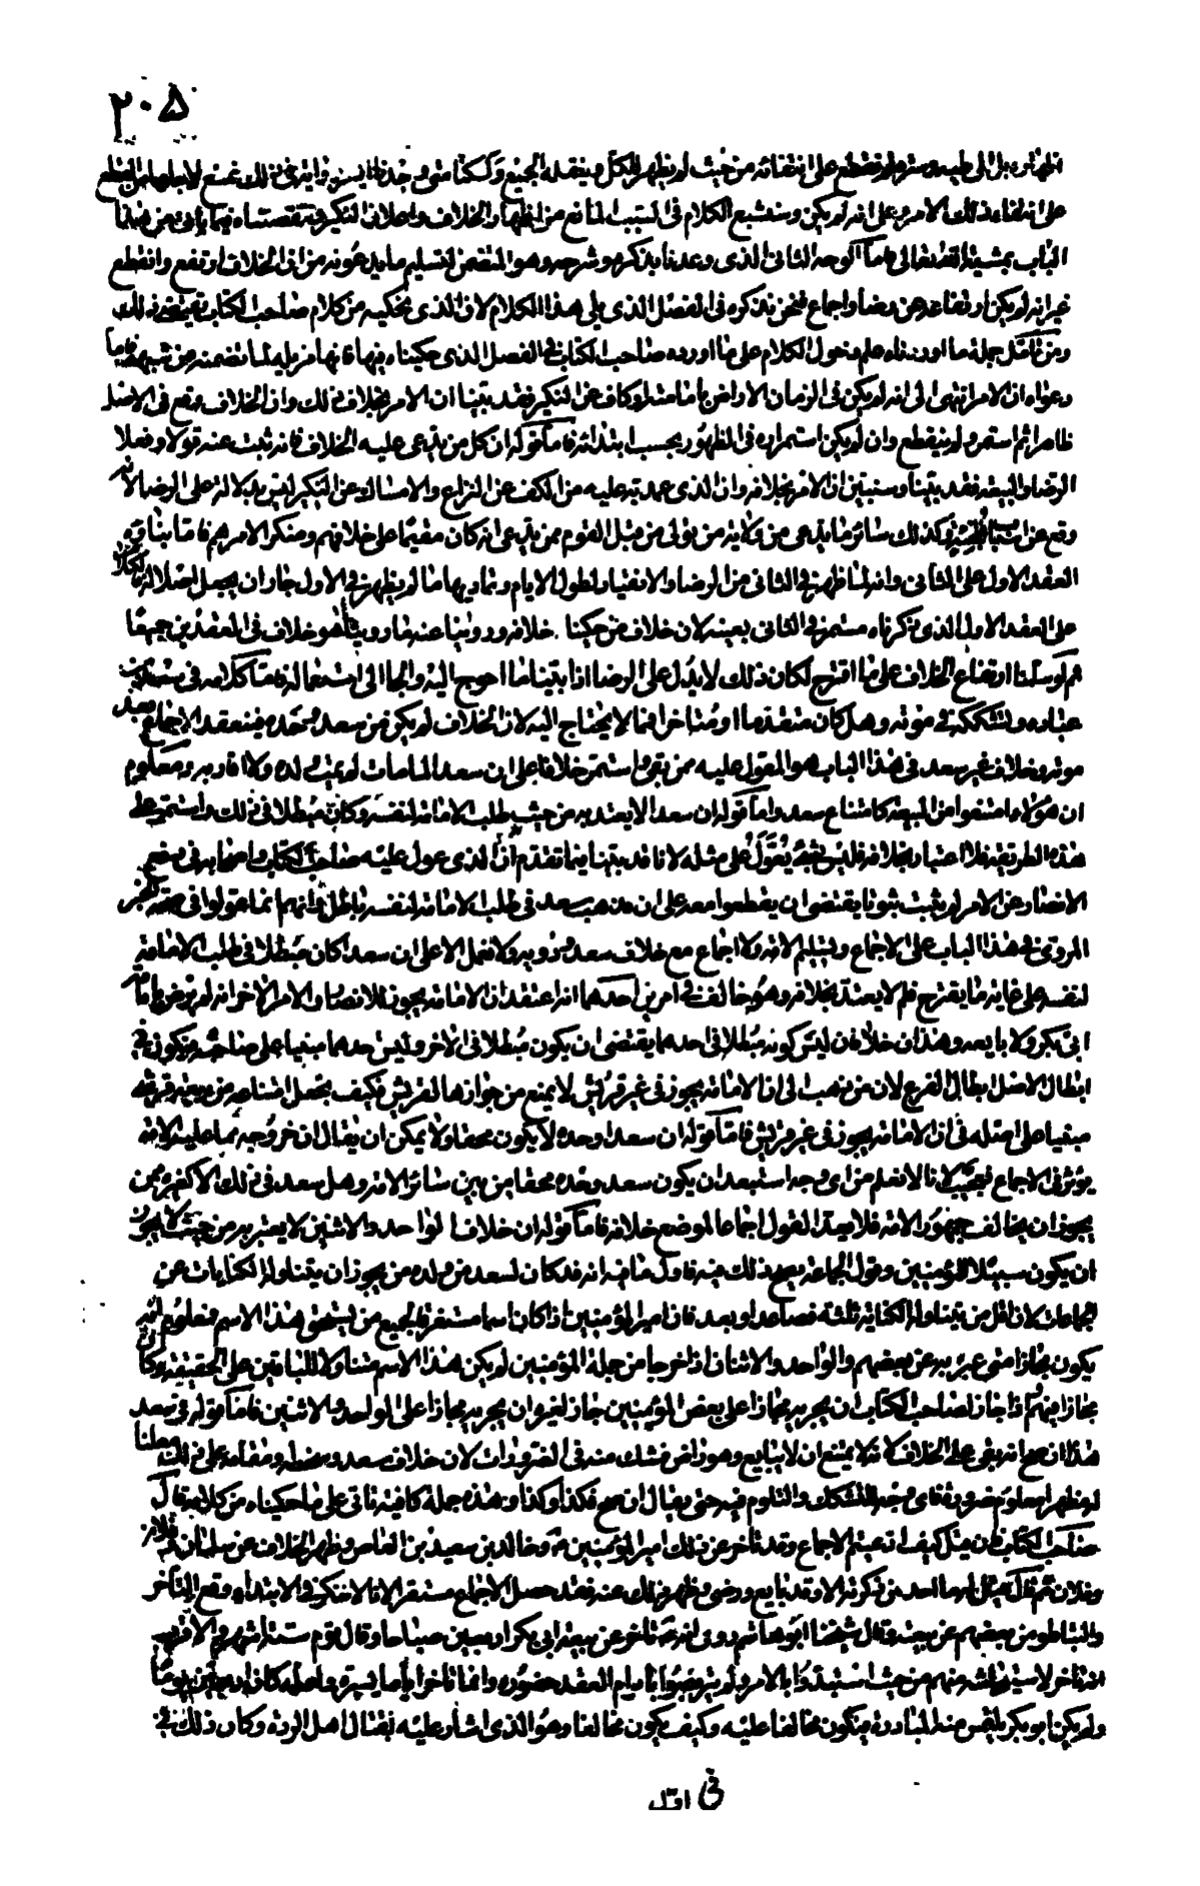 ٢٠٥
على انتفائه من حيث لم يظهر للكل وينقله الجميع
على انتفاء ذلك الامر وعلى انه لم يكن وسنشبع الكلام في السبب المانع من اظهار الخلاف واعلان النكير ونتقصاه فيما ياتى من هذا
الباب بمشية الله تعالى فاما الوجه الثانى الذى وعدنا بذكره وشرحه وهو المتضمن لتسليم ما يدعونه من ان الخلاف ارتفع وانقطع
غير انه لم يكن ارتفاعه عن رضا واجماع فنحن نذكره فى الفصل الذى يلى هذا الكلام لان الذى نحكيه من كلام صاحب الكتاب يقتضى ذلك
ومن تامل جملة ما اوردناه علم دخول الكلام على ما اورده صاحب الكتاب فى الفصل الذى حكيناه
دعواه ان الامر انتهى الى انه لم يكن فى الزمان الا راض بامامته او كاف عن النكير فقد بينا ان الامر بخلاف ذلك وان الخلاف وقع فى الاصل
ظاهرا ثم استمر ولم ينقطع وان لم يكن استمراره فى الظهور بحسب ابتدائه فاما قوله ان كل من يدعى عليه الخلاف فانه ثبت عنه قولا وفعلا
الرضا والبيعة فقد بينا وسنبين ان الامر بخلافه وان الذى عمد به عليه من الكف عن النزاع والامساك عن النكير ليس بدلالة على الرضا لانه
وقع عن اسباب وكذلك سائر ما يدعى من ولاية من تولى من قبل القوم ممن يدعى انه كان مقيما على خلافهم ومنكرا لامرهم فاما بناؤه
العقد الاول على الثانى وانه لما ظهر فى الثانى من الرضا والانقياد لطول الايام وتماديها ما لم يظهر فى الاول جاز ان يجعل اصلا له فالكلام
على العقد الاول الذى ذكرناه مستمر فى الثانى بعينه لان خلاف من حكينا خلافه وروينا عنه ما روينا هو خلاف فى العقدين جميعا
ثم لو سلمنا ارتفاع الخلاف على ما اقترح لكان ذلك لا يدل على الرضا اذا بينا ما احوج اليه والجا الى استعماله فاما كلامه فى سعد بن
عباده وتشككه فى موته وهل كان متقدما او متاخرا فما لا يحتاج اليه لان الخلاف لم يكن من سعد وحده فينعقد الاجماع بعد
موته وخلاف غير سعد فى هذا الباب هو المعول عليه ممن بقى واستمر خلافه على ان سعدا لما مات لم يمت ولده ولا اقاربه ومعلوم
ان هؤلاء امتنعوا من البيعة كامتناع سعد واما قوله ان سعدا لا يعتد به من حيث طلب الامامة لنفسه وكان مبطلا فى ذلك واستمر على
هذه الطريقة فلا اعتبار بخلافه فليس بشئ يعول على مثله لانا قد بينا فيما تقدم ان الذى عول عليه صاحب الكتاب واصحابه فى دفع
الانصار عن الامر لم يثبت ثبوتا يقتضى ان يقطعوا معه على ان مذهب سعد فى طلب الامامة لنفسه باطل وانهم انما عولوا فى صحة الخبر
المروى فى هذا الباب على الاجماع وتسليم الامة ولا اجماع مع خلاف سعد وذويه ولا نعمل الا على ان سعدا كان مبطلا فى طلب الامامة
لنفسه على غاية ما يقترح فلم لا يعتد بخلافه وهو خالف فى امرين احدهما انه اعتقد ان الامامة يجوز للانصار والامر الاخر انه لم يرض بامامة
ابى بكر ولا بايعه وهذان خلافان ليس كونه مبطلا فى احدهما يقتضى ان يكون مبطلا فى الاخر وليس احدهما مبنيا على صاحبه فيكون فى
ابطال الاصل ابطال الفرع لان من ذهب الى ان الامامة يجوز فى غير قريش لا يمنع من جوازها لقريش فكيف يجعل امتناعه من بيعة قريش
مبنيا على اصله فى ان الامامة يجوز فى غير قريش فاما قوله ان سعدا وحده لا يكون محقا ولا يمكن ان يقال ان خروجه مما عليه الامة
يؤثر فى الاجماع فعجيب لانا لا نعلم من اى وجه استبعد ان يكون سعد وحده محقا من بين سائر الامة وهل سعد فى ذلك الا كغيره ممن
يجوز ان يخالف جمهور الامة فلا يعد القول اجماعا لموضع خلافه فاما قوله ان خلاف الواحد والاثنين لا يعتبر به من حيث لا يجوز
ان يكون سبيلا للمؤمنين وقول الجماعة يصح ذلك فيه فاول ما فيه انه قد كان لسعد من ولده من يجوز ان يتناوله الكنايات عن
الجماعات لان اقل من يتناوله الكناية ثلاثة فصاعدا وبعد فان امير المؤمنين اذا كان اسما مستغرقا لجميع من يستحق هذا الاسم فمعلوم انه
يكون مجازا متى عبر به عن بعضهم والواحد والاثنان اذا خرجا من جملة المؤمنين لم يكن هذا الاسم متناولا للباقين على الحقيقة وكان
مجازا فيهم فاذا جاز لصاحب الكتاب ان يجريه مجازا على بعض المؤمنين جاز لغيره ان يجريه مجازا على الواحد والاثنين فاما قوله فى سعد
هذا ان صح انه بقى على الخلاف لانه لا يمتنع ان لا يبايع وهو راض فشك منه فى الضرورات لان خلاف سعد وسخطه ومقامه على ذلك معلنا
لم يظهر معلوم ضرورة فاى وجه للتشكك والتلوم فيه حتى يقال ان صح فكذا وكذا وهذه جملة كافية تاتى على ما حكيناه من كلامه قال
صاحب الكتاب فان قيل كيف ادعيتم الاجماع وقد تاخر عن ذلك امير المؤمنين وخالد بن سعيد بن العاص وظهر الخلاف عن سلمان وفلان
وفلان ثم قال قيل له ما احد من ذكرته الا وقد بايع ورضى وظهر ذلك عنه فقد حصل الاجماع مستقرا لانا لا ننكر فى الابتداء وقع التاخر
والتباطؤ من بعضهم عن بيعته وقال شيخنا ابو هاشم روى انه تاخر عن بيعة ابى بكر اربعين صباحا وقال قوم ستة اشهر والاقرب
انه تاخر لاستيحاشه منهم من حيث استبدوا بالامر ولم يتربصوا بابرام العقد حضوره وانما تاخر اياما يسيرة
ولم يكن ابو بكر يلتمس منه المبادرة فيكون مخالفا عليه وكيف يكون مخالفا وهو الذى اشار عليه بقتال اهل الردة وكان ذلك فى
فى اول